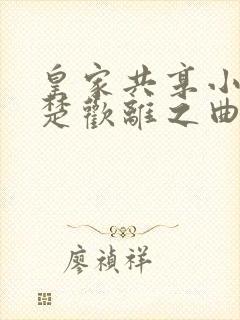 皇家共享小
楚歡離之曲
廖禎祥